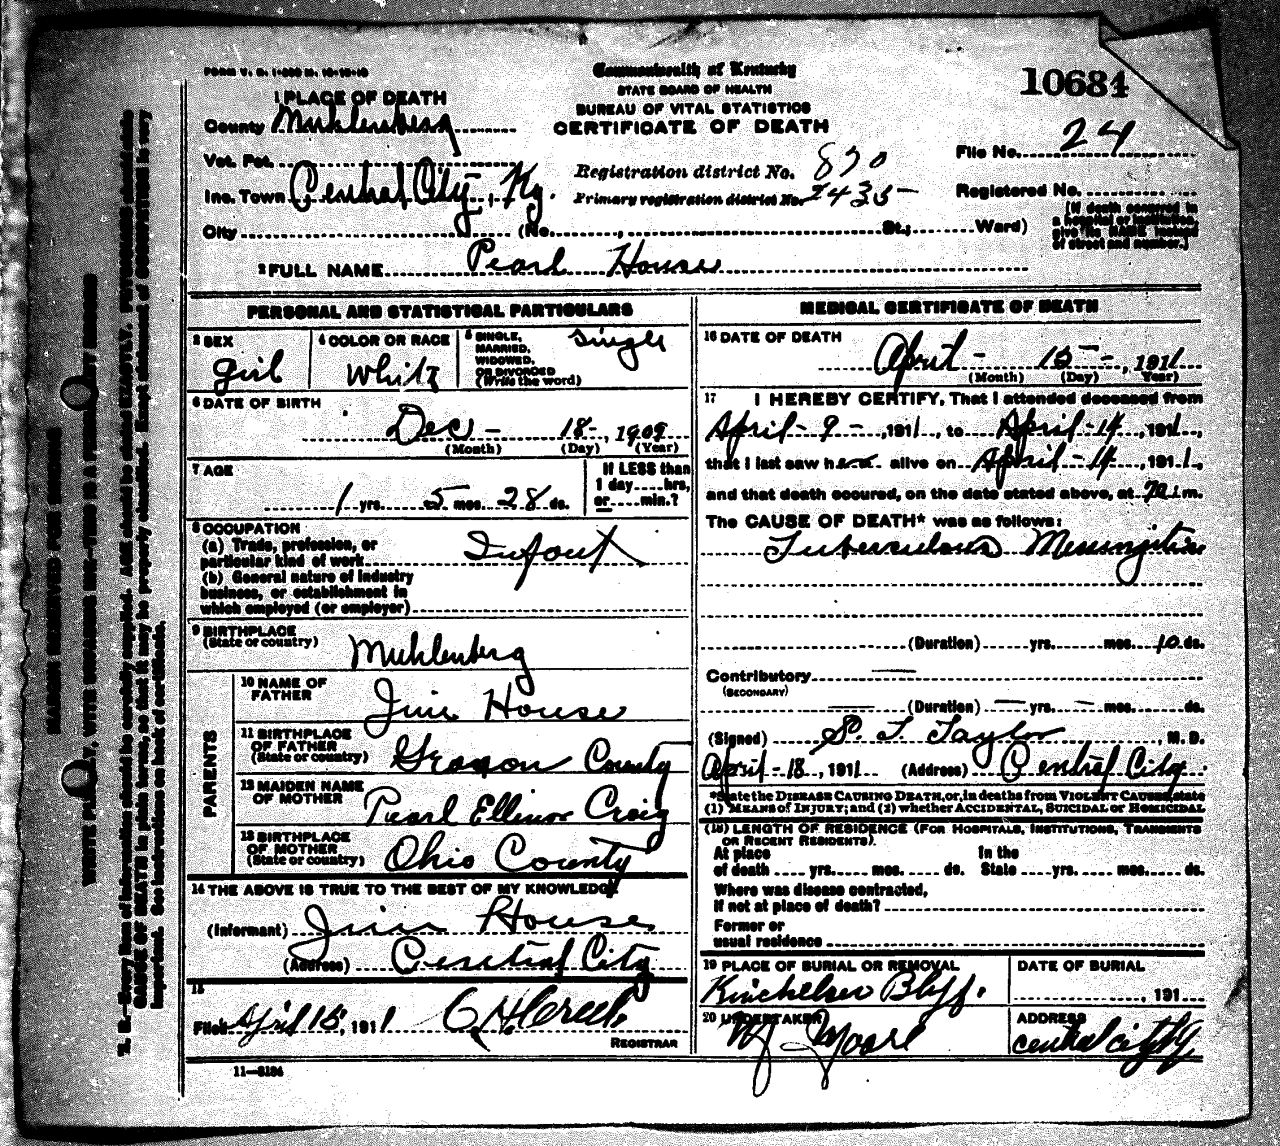 FORM V. S. 1-
10684
Commonwealth of Kentucky
STATE BOARD OF HEALTH
BUREAU OF VITAL STATISTICS
CERTIFICATE OF DEATH
1 PLACE OF DEATH
County Muhlenberg
Vot. Pct.
Inc. Town Central City, Ky.
City (No. , St.; Ward)
Registration district No. 870
Primary registration district No. 2435
File No. 24
Registered No.
[If death occurred in
a hospital or institution,
give its NAME instead
of street and number.]
2 FULL NAME Pearl House
PERSONAL AND STATISTICAL PARTICULARS
3 SEX girl
4 COLOR OR RACE White
5 SINGLE,
MARRIED,
WIDOWED,
OR DIVORCED
(Write the word) Single
6 DATE OF BIRTH
Dec - 18 - , 1909
(Month) (Day) (Year)
7 AGE
1 yrs. 5 mos. 28 ds.
If LESS than
1 day....hrs,
or.....min.?
8 OCCUPATION
(a) Trade, profession, or
particular kind of work Infant
(b) General nature of industry
business, or establishment in
which employed (or employer)
9 BIRTHPLACE
(State or country) Muhlenberg
PARENTS
10 NAME OF
FATHER Jim House
11 BIRTHPLACE
OF FATHER
(State or country) Grayson County
12 MAIDEN NAME
OF MOTHER Pearl Ellinor Craig
13 BIRTHPLACE
OF MOTHER
(State or country) Ohio County
14 THE ABOVE IS TRUE TO THE BEST OF MY KNOWLEDGE
(Informant) Jim House
(Address) Central City
15
Filed April 15, 1911
REGISTRAR
11-3184
MEDICAL CERTIFICATE OF DEATH
16 DATE OF DEATH
April - 15 - , 1911
(Month) (Day) Year)
17 I HEREBY CERTIFY, That I attended deceased from
April - 9 - , 1911, to April - 14, 1911,
that I last saw her alive on April - 14, 1911,
and that death occured, on the date stated above, at m.
The CAUSE OF DEATH* was as follows:
Tuberculous Meningitis
(Duration) yrs. mos. 10 ds.
Contributory —
(SECONDARY)
— (Duration) — yrs. — mos. ds.
(Signed) S. T. Taylor, M. D.
April - 18, 1911 (Address) Central City
*State the DISEASE CAUSING DEATH, or, in deaths from VIOLENT CAUSES, state
(1) MEANS of INJURY; and (2) whether ACCIDENTAL, SUICIDAL or HOMICIDAL
(18) LENGTH OF RESIDENCE (FOR HOSPITALS, INSTITUTIONS, TRANSIENTS
OR RECENT RESIDENTS).
At place
of death yrs. mos. ds.
In the
State yrs. mos. ds.
Where was disease contracted,
if not at place of death?
Former or
usual residence
19 PLACE OF BURIAL OR REMOVAL
Kincheloe Bluff.
DATE OF BURIAL
, 191
20 UNDERTAKER
Moore
ADDRESS
central city Ky
MARGIN RESERVED FOR BINDING
WRITE PLAINLY, WITH UNFADING INK—THIS IS A PERMANENT RECORD
N. B.—Every item of information should be carefully supplied. AGE should be stated EXACTLY. PHYSICIANS should state
CAUSE OF DEATH in plain terms, so that it may be properly classified. Exact statement of OCCUPATION is very
important. See instructions on back of certificate.